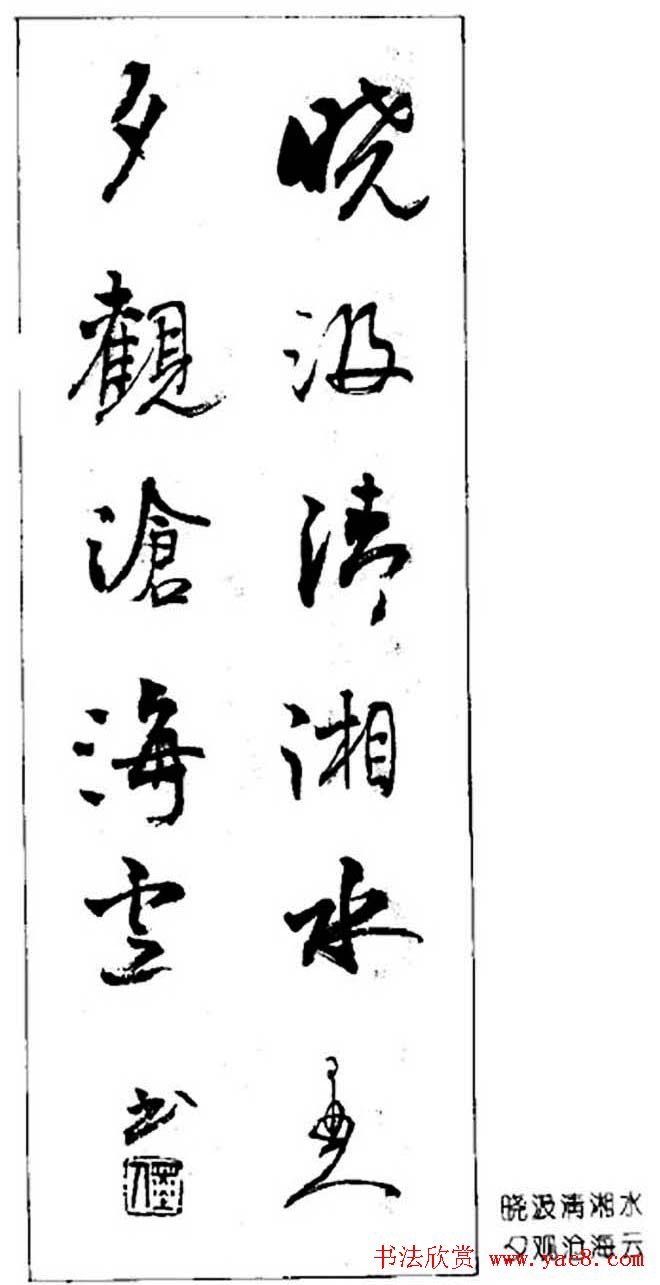 晓汲清湘水
夕觀滄海雲
书
晓汲清湘水
夕观沧海云
书法欣赏 www.yac8.com